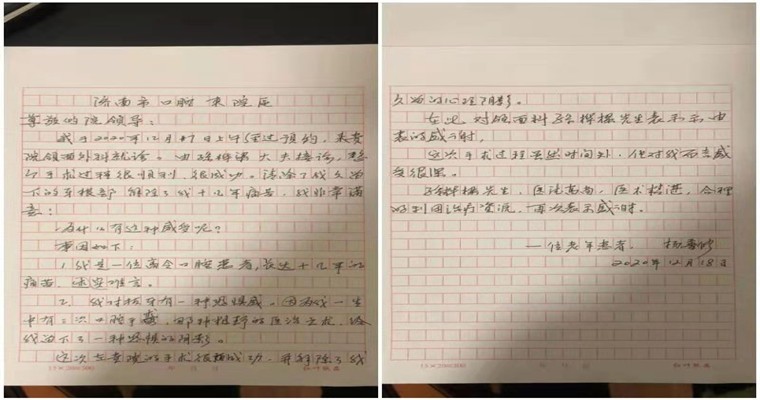 济南市口腔 东院区
尊敬的院领导：
我于2020年12月 日上午经过预约，来贵
院颌面外科就诊。由 大夫接诊，整
个手术过程很顺利，很成功。清除了我
下的牙根部，解除了我十几年痛苦，我非常满
意：
为什么有这种感受呢？
原因如下：
1. 我是一位 口腔患者，长达十几年的
痛苦，述实难言。
2. 我对拔牙有一种恐惧感。因为我一生
中有三次口腔手 ，那种粗野的医治 ，给
我留下了一种恐惧的阴影。
这次在贵院的手术很 成功，并解除了我
久治的心理阴影。
在此，对颌面科 先生表示由
衷的感谢。
这次手术过程虽然时间 ，但对我 感
受很深。
先生，医德高尚，医术精进，合理
的利用治疗资源。再次表示感谢。
一位老年患者： 杨
2020年12月18日
15×20=300
年 月 日